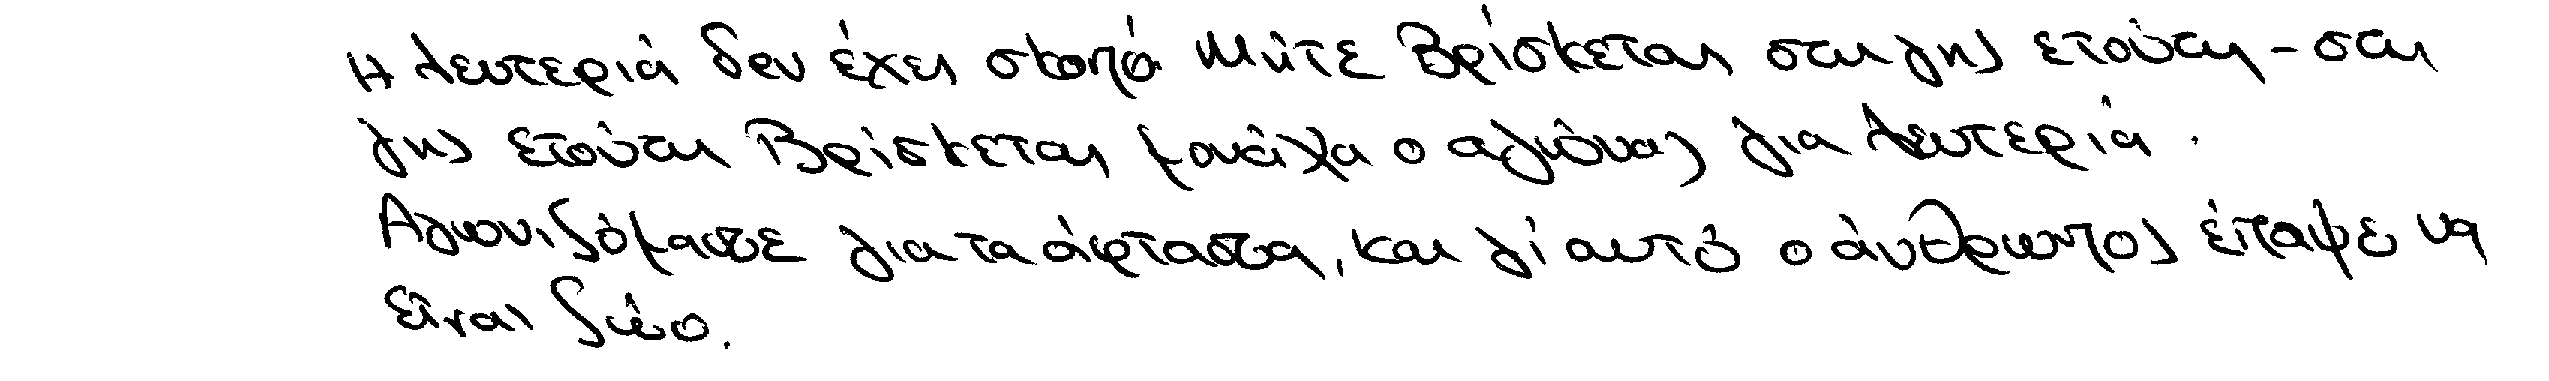 Η λευτεριά δεν έχει σκοπό μήτε βρίσκεται στη γης ετούτη - στη
γης ετούτη βρίσκεται μονάχα ο αγώνας για λευτεριά.
Αγωνιζόμαστε για τα άφταστα, και γι' αυτό ο άνθρωπος έπαψε να
είναι ζώο.